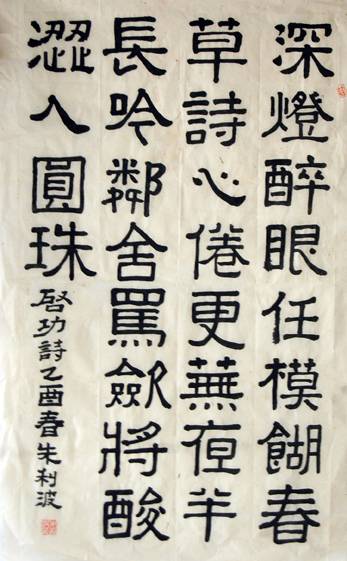 深燈醉眼任模餬春
草詩心倦更蕪夜半
長吟鄰舍罵歛將酸
澀入圓珠
啓功詩乙酉春朱利波